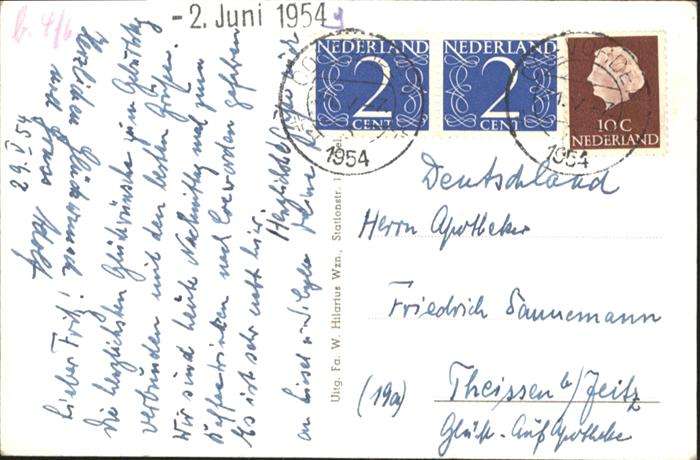 - 2. Juni 1954
NEDERLAND
2
CENT
NEDERLAND
2
CENT
10 C
NEDERLAND
1954
1954
Deutschland
Herrn Apotheker
Friedrich Dannemann
(19a) Theissen b/Zeitz
Glück-Auf Apotheke
Uitg. Fa. W. Hilarius Wzn., Stationstr. 1
29. V. 54
Lieber Fritz!
Die herzlichsten Glückwünsche zum Geburtstag
verbunden mit den besten Grüßen.
Wir sind heute Nachmittag mal zum
Kaffeetrinken nach Coevorden gefahren
Es ist sehr nett hier.
Herzlichen Glückwunsch
und Gruss Adolf